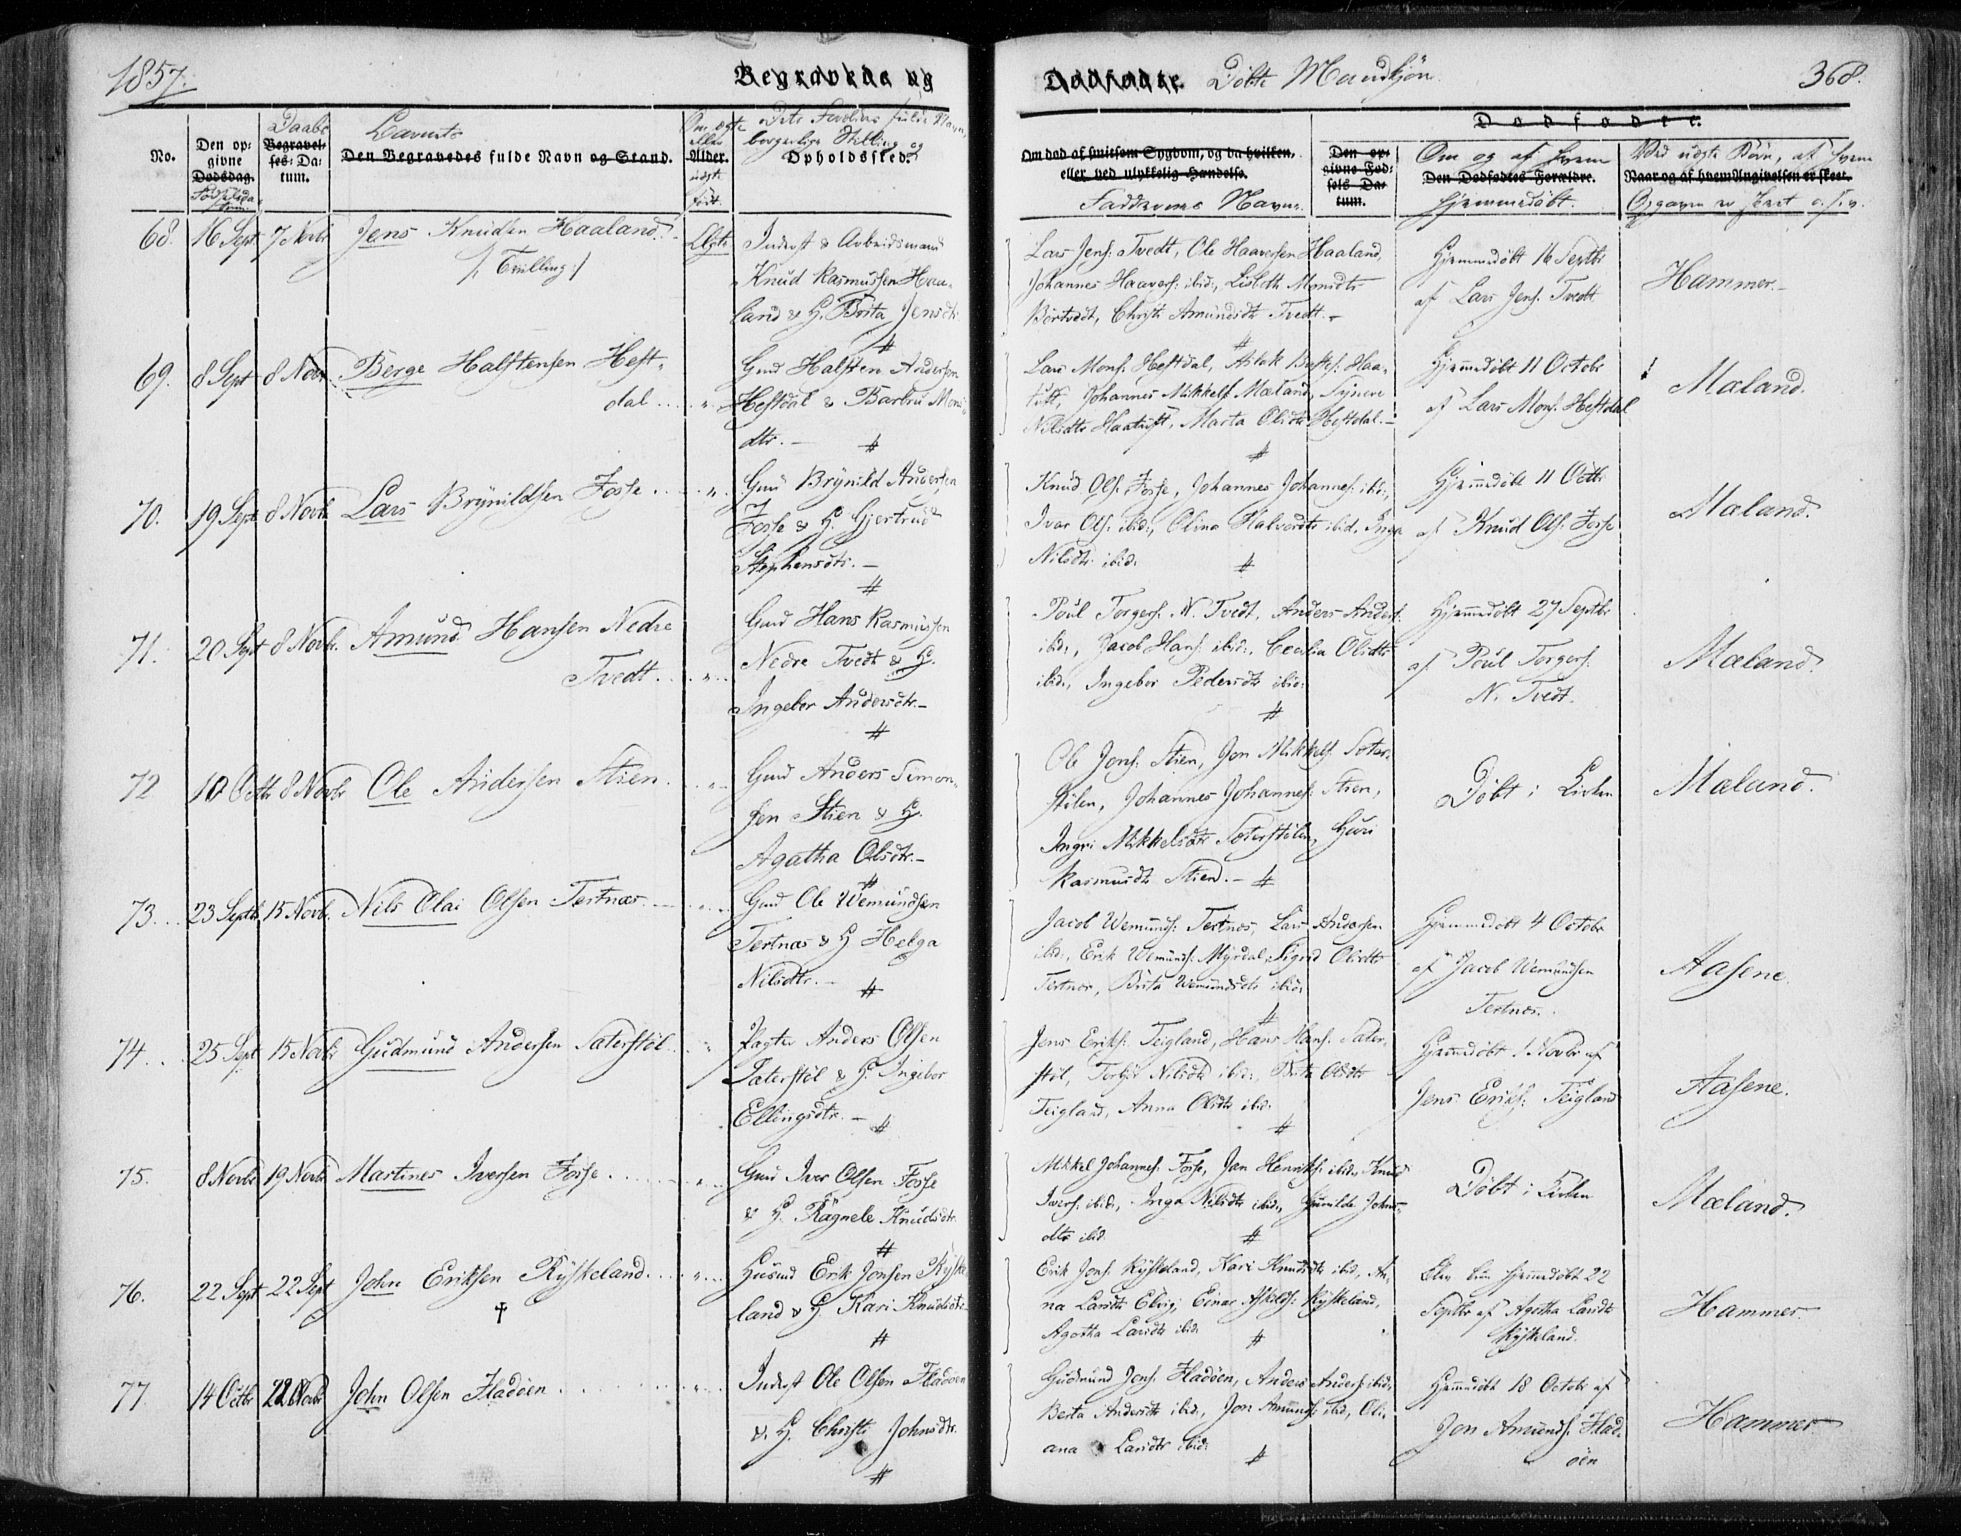 1857.
Begravede og
Dødfødte. Døbte Mandkjøn.
368.
No.
Den op-
givne
Dødsdag.
Fødselsda-
tum.
Daabs
Begravel-
ses-Da-
tum.
Barnets
Den Begravedes fulde Navn og Stand.
Om ægte
eller
Alder.
uægte
født.
Dets Forældres fulde Navn,
borgerlige Stilling og
Opholdssted.
Om død af smitsom Sygdom, og da hvilken,
eller ved ulykkelig Hændelse.
Faddernes Navne.
Dødfødte.
Den op-
givne Fød-
sels Da-
tum.
Om og af hvem
Den Dødfødtes Forældre.
hjemmedøbt.
Ved uægte Børn, af hvem
Naar og af hvem Angivelsen er skeet.
Opgaven er skeet o.s.v.
68. 16 Sept. 7 Novbr Jens Knudsen Haaland. Ægte
/: Tvilling :/
Inderst & Arbeidsmand
Knud Rasmussen Haa-
land & H. Brita Jensdtr.
#
Lars Jens. Tvedt, Ole Haaversen Haaland,
Johannes Haavers. ibid., Lisbeth Monsdtr
Børtvedt, Christi Amundsdtr Tvedt. -
#
Hjemmedøbt 16 Septbr
af Lars Jens. Tvedt
Hammer. -
69. 8 Sept 8 Novbr Børge Halstensen Heft-
dal .... "
Gmd Halsten Andersen
Heftdal & Barbru Mons-
dtr. - #
Lars Mons. Heftdal, Aslak Haa-
tuft, Johannes Mikkels. Mæland, Synneve
Nilsdtr Haatuft, Marta Olsdtr Heftdal. -
#
Hjemmedøbt 11 Octobr
af Lars Mons. Heftdal
Mæland.
70. 19 Sept 8 Novbr Lars Brynildsen Fosse .... "
Gmd Brynild Andersen
Fosse & H. Gjertrud
Stephensdtr. -
#
Knud Ols. Fosse, Johannes Johannes. ibid.,
Ivar Ols. ibid., Olina Halvordtr ibid., Inga
Nilsdtr ibid. #
Hjemmedøbt 11 Octbr
af Knud Ols. Fosse
Mæland.
71. 20 Sept 8 Novbr. Amund Hansen Nedre
Tvedt .... "
Gmd Hans Rasmussen
Nedre Tvedt & H.
Ingebor Andersdtr. -
#
Poul Torgers. N. Tvedt, Anders Anders.
ibid., Jacob Hans. ibid., Cecilia Olsdtr
ibid., Ingebor Pedersdtr ibid.
#
Hjemmedøbt 27 Septbr
af Poul Torgers.
N. Tvedt.
Mæland.
72 10 Octbr 8 Novbr Ole Andersen Stien. ... "
Gmd Anders Simon-
sen Stien & H.
Agatha Olsdtr. -
#
Ole Jons. Stien, Jon Mikkels. Sæter-
stølen, Johannes Johannes. Stien,
Ingri Mikkelsdtr Sæterstølen, Guri
Rasmusdtr Stien. - #
Døbt i Kirken
Mæland.
73. .. 23 Septbr 15 Novbr. Nils Olai Olsen Tertnæs .... "
Gmd Ole Wemundsen
Tertnæs & H Helga
Nilsdtr. - #
Jacob Wemunds. Tertnes, Lars Andersen
ibid., Erik Wemunds. Myrdal, Sigrid Olsdtr
Tertnes, Brita Wemundsdtr ibid.
#
Hjemmedøbt 4 Octobr
af Jacob Wemundsen
Tertnes.
Aasene.
74. .. 25 Sept 15 Novbr Gudmund Andersen Sæterstøl .. "
Pagter Anders Olsen
Sæterstøl & H. Ingebor
Ellingsdtr. - #
Jens Eriks. Teigland, Hans Hans. Sæter-
støl, Torbjør Nilsdtr ibid., Brita Olsdtr
Teigland, Anna Olsdtr ibid.
#
Hjemmedøbt 1 Novbr af
Jens Eriks. Teigland
Aasene.
75. 8 Novbr 19 Novbr Martines Iversen Fosse .... "
Gmd Iver Olsen Fosse
& H. Ragnele Knudsdtr
#
Mikkel Johannes. Fosse, Jan Henriks. ibid., Knud
Ivers. ibid., Inga Nilsdtr ibid., Gunilde Johns-
dtr ibid. #
Døbt i Kirken
Mæland.
76. 22 Sept 22 Sept John Eriksen Rÿskeland .... "
✝
Husmd Erik Jonsen Rÿske-
land & H. Kari Knudsdtr
#
Erik Jons. Rÿskeland, Kari Knudsdtr ibid., An-
na Larsdtr Elvig, Einar Askilds. Rÿskeland,
Agatha Larsdtr ibid. #
Blev kun hjemmedøbt 22
Septbr af Agatha Larsdtr
Rÿskeland.
Hammer.
77 14 Octbr 22 Novbr John Olsen Fladøen .... "
Inderst Ole Olsen Fladøen
& H. Christi Johnsdtr.
#
Gudmund Jons. Fladøen, Anders Anders. ibid.,
Berta Andersdtr ibid., Jon Amunds. ibid., Oli-
ana Larsdtr ibid. #
Hjemmedøbt 18 Octobr af
Jon Amunds. Flad-
øen
Hammer